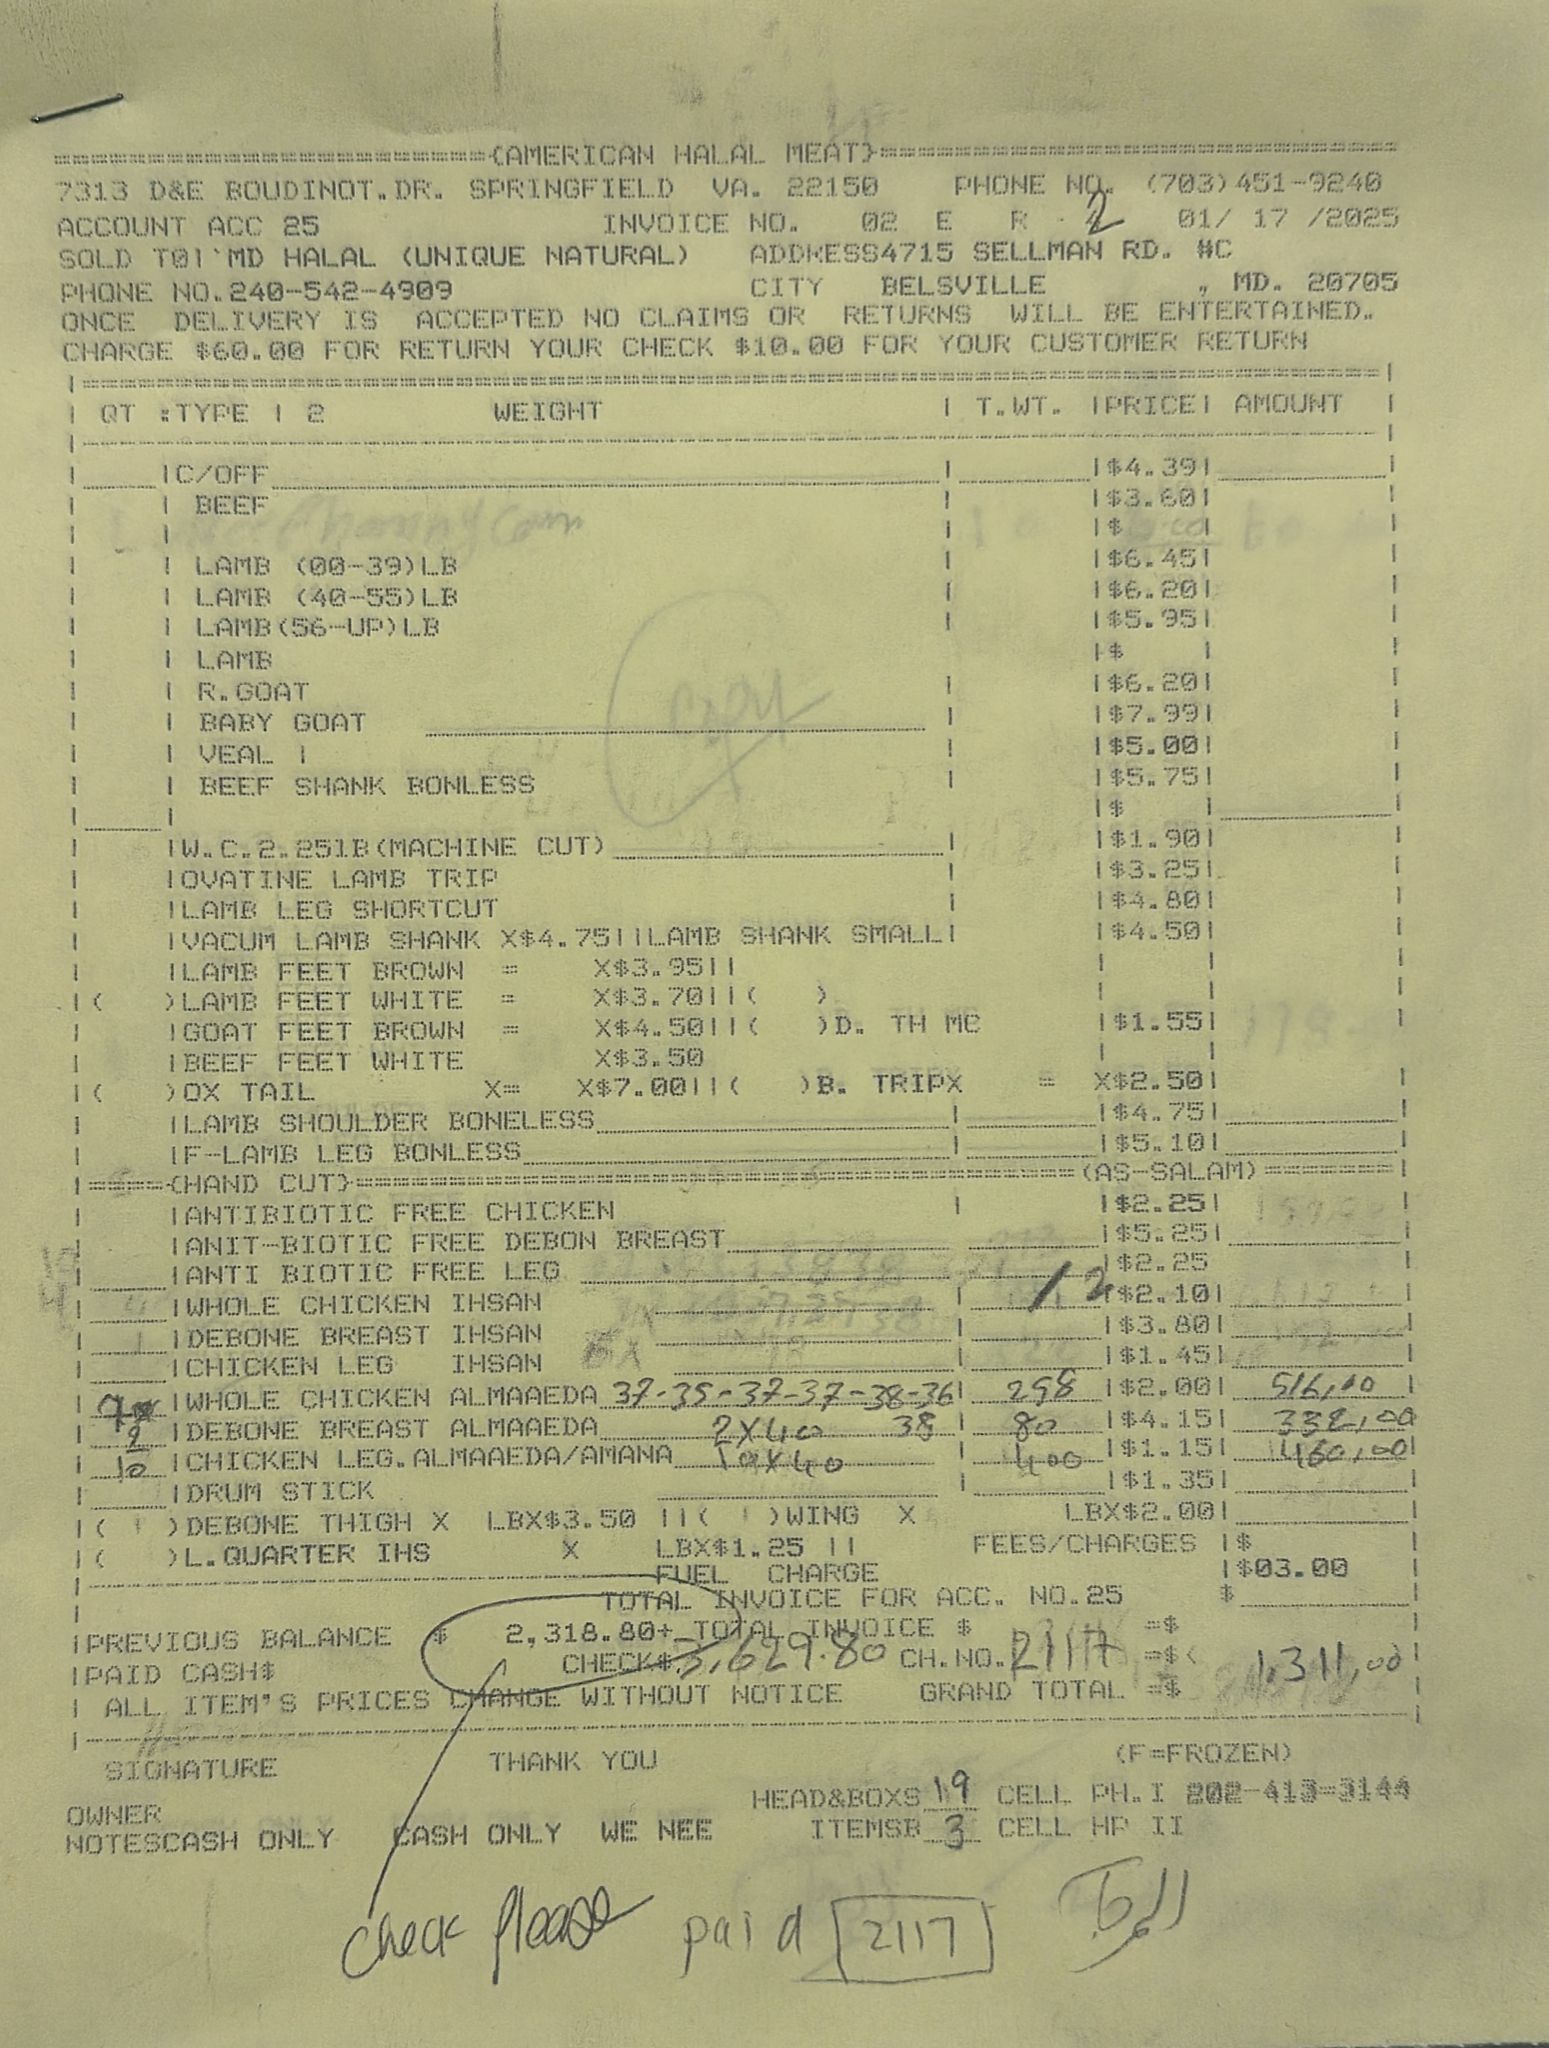 {AMERICAN HALAL MEAT}
7313 D&E BOUDINOT.DR. SPRINGFIELD VA. 22150 PHONE NO. (703)451-9240
ACCOUNT ACC 25 INVOICE NO. 02 E R 2 01/ 17 /2025
SOLD TO|`MD HALAL (UNIQUE NATURAL) ADDRESS4715 SELLMAN RD. #C
PHONE NO.240-542-4909 CITY BELSVILLE , MD. 20705
ONCE DELIVERY IS ACCEPTED NO CLAIMS OR RETURNS WILL BE ENTERTAINED.
CHARGE $60.00 FOR RETURN YOUR CHECK $10.00 FOR YOUR CUSTOMER RETURN
QT :TYPE | 2 WEIGHT | T.WT. |PRICE| AMOUNT
C/OFF $4.39
BEEF $3.60
$
LAMB (00-39)LB $6.45
LAMB (40-55)LB $6.20
LAMB(56-UP)LB $5.95
LAMB $
R.GOAT $6.20
BABY GOAT $7.99
VEAL | $5.00
BEEF SHANK BONLESS $5.75
$
W.C.2.25lB(MACHINE CUT) $1.90
OVATINE LAMB TRIP $3.25
LAMB LEG SHORTCUT $4.80
VACUM LAMB SHANK X$4.75||LAMB SHANK SMALL| $4.50
LAMB FEET BROWN = X$3.95||
( )LAMB FEET WHITE = X$3.70||( )
GOAT FEET BROWN = X$4.50||( )D. TH MC $1.55
BEEF FEET WHITE X$3.50
( )OX TAIL X= X$7.00||( )B. TRIPX = X$2.50
LAMB SHOULDER BONELESS $4.75
F-LAMB LEG BONLESS $5.10
{HAND CUT} (AS-SALAM)
ANTIBIOTIC FREE CHICKEN $2.25
ANIT-BIOTIC FREE DEBON BREAST $5.25
ANTI BIOTIC FREE LEG $2.25
WHOLE CHICKEN IHSAN 12 $2.10
DEBONE BREAST IHSAN $3.80
CHICKEN LEG IHSAN $1.45
7 WHOLE CHICKEN ALMAAEDA 37-35-37-37-38-36 298 $2.00 516,00
2 DEBONE BREAST ALMAAEDA 2X40 38 80 $4.15 332,00
10 CHICKEN LEG.ALMAAEDA/AMANA 10X40 400 $1.15 460,00
DRUM STICK $1.35
( )DEBONE THIGH X LBX$3.50 ||( )WING X LBX$2.00
( )L.QUARTER IHS X LBX$1.25 || FEES/CHARGES $
FUEL CHARGE $03.00
TOTAL INVOICE FOR ACC. NO.25 $
PREVIOUS BALANCE $ 2,318.80+ TOTAL INVOICE $ =$
PAID CASH$ CHECK$ 3,629.80 CH.NO. 2117 =$( 1,311,00
ALL ITEM'S PRICES CHANGE WITHOUT NOTICE GRAND TOTAL =$
SIGNATURE THANK YOU (F=FROZEN)
HEAD&BOXS 19 CELL PH.I 202-413-3144
OWNER
NOTESCASH ONLY CASH ONLY WE NEE ITEMSB 3 CELL HP II
check please paid 2117